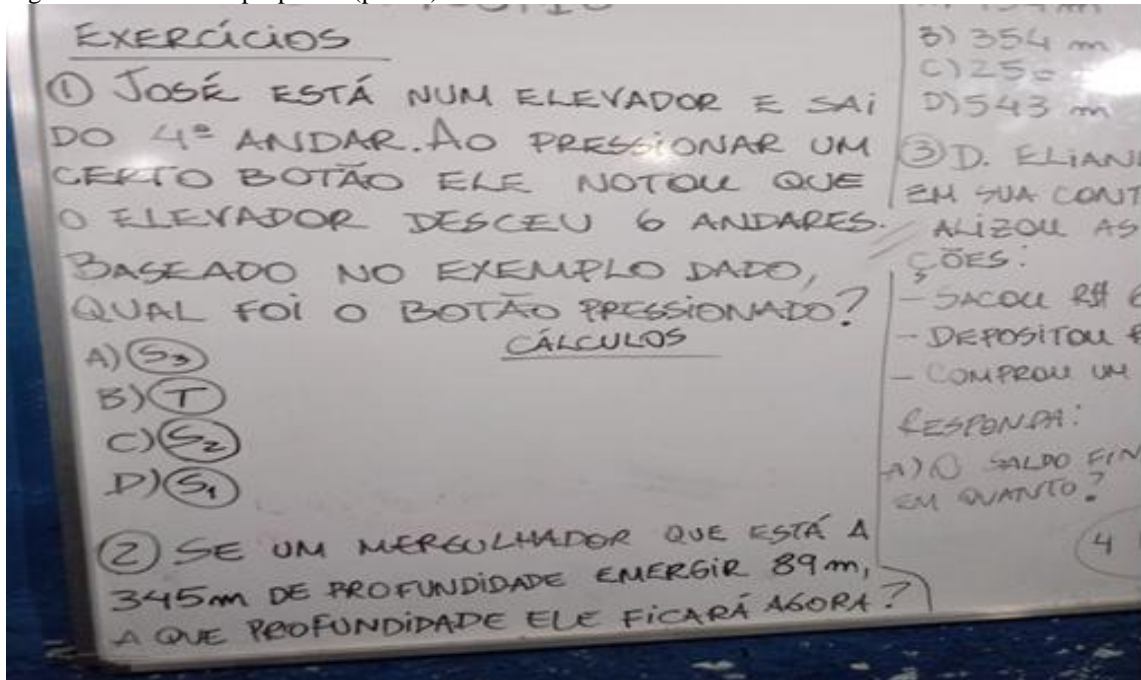 EXERCÍCIOS
① JOSÉ ESTÁ NUM ELEVADOR E SAI
DO 4º ANDAR. AO PRESSIONAR UM
CERTO BOTÃO ELE NOTOU QUE
O ELEVADOR DESCEU 6 ANDARES.
BASEADO NO EXEMPLO DADO,
QUAL FOI O BOTÃO PRESSIONADO?
CÁLCULOS
A) S₃
B) T
C) S₂
D) S₁
② SE UM MERGULHADOR QUE ESTÁ A
345m DE PROFUNDIDADE EMERGIR 89m,
A QUE PROFUNDIDADE ELE FICARÁ AGORA?
B) 354 m
D) 543 m
③ D. ELIAN
EM SUA CONT
ALIZOU AS
ÇÕES:
- SACOU R$ 6
- DEPOSITOU
- COMPROU UM
RESPONDA:
A) O SALDO FIN
EM QUANTO?
4